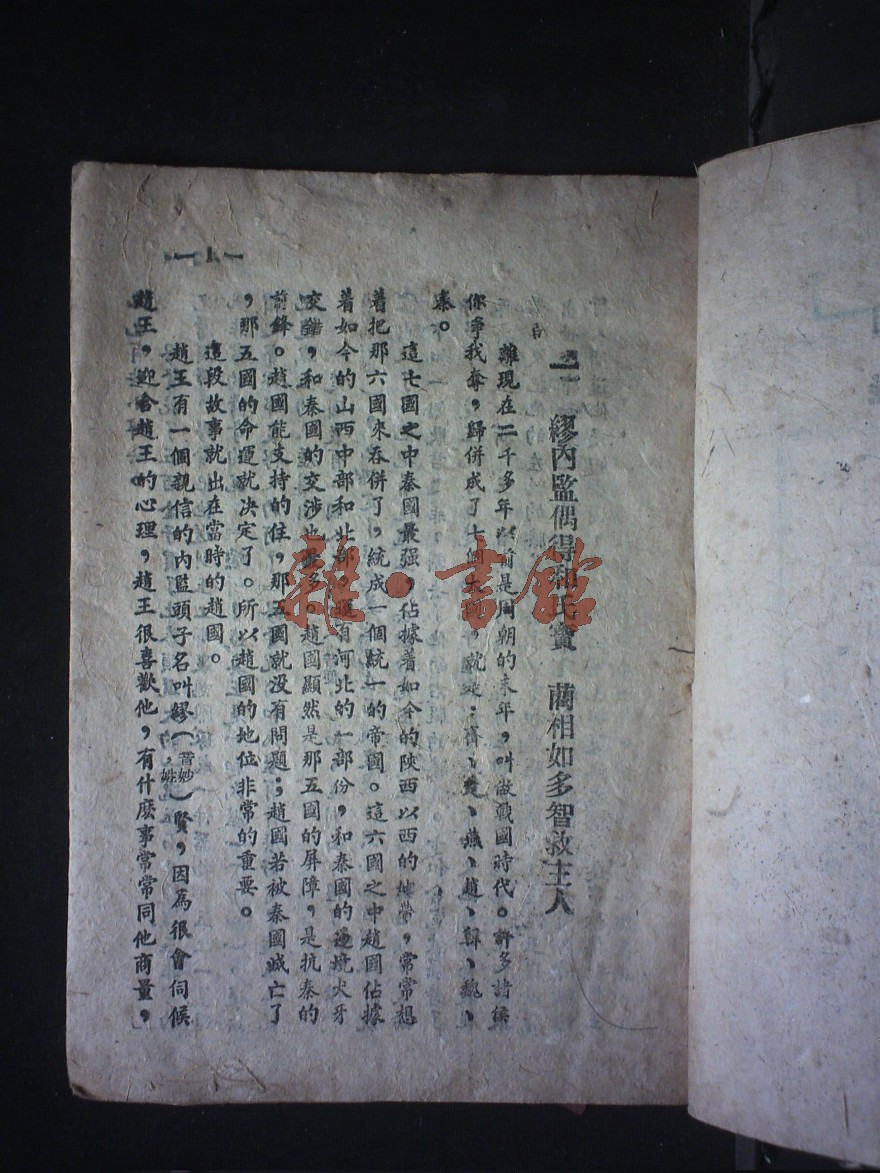 一 繆內監偶得和氏寶 藺相如多智救主人
離現在二千多年以前是周朝的末年，叫做戰國時代。許多諸侯
你爭我奪，歸併成了七個大國，就是：齊、楚、燕、趙、韓、魏、
秦。
這七國之中秦國最强，佔據着如今的陝西以西的地帶，常常想
着把那六國來吞併了，統成一個統一的帝國。這六國之中趙國佔據
着如今的山西中部和北部，還有河北的一部份，和秦國的邊境犬牙
交錯，和秦國的交涉也最多。趙國顯然是那五國的屏障，是抗秦的
前鋒。趙國能支持的住，那五國就没有問題；趙國若被秦國滅亡了
，那五國的命運就决定了。所以趙國的地位非常的重要。
這段故事就出在當時的趙國。
趙王有一個親信的內監頭子名叫繆（音妙姓）賢，因為很會伺候
趙王，迎合趙王的心理，趙王很喜歡他，有什麽事常常同他商量，
一1一
雜·書館